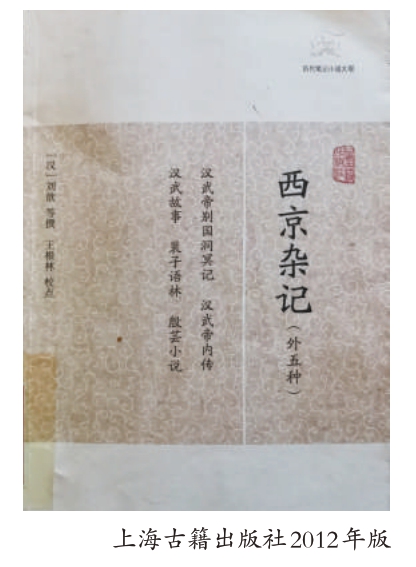 历代笔记小说大观
西京杂记（外五种）
汉武帝别国洞冥记 汉武帝内传
汉武故事 裴子语林 殷芸小说
［汉］刘歆 等撰 王根林 校点
上海古籍出版社2012年版